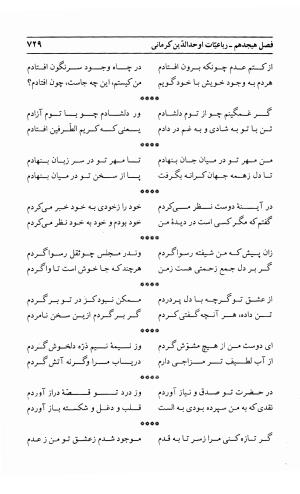 فصل هیجدهم ـ رباعیّات اوحدالدّین کرمانی ۷۲۹
از کتم عدم چونکه برون افتادم در چاه وجود سرنگون افتادم
هردم به وجود خویش با خود گویم من کیستم، این چه جاست، چون افتادم؟
****
گر غمگینم چو از توم دلشادم ور دلشادم چو با توم آزادم
تن با تو به شادی و به غم در دادم یعنی که کریم الطّرفین افتادم
****
من مهر تو در میان جان بنهادم تا مهر تو در سر زبان بنهادم
تا دل زهمه جهان کرانه بگرفت پا از سخن تو در میان بنهادم
****
در آینهٔ دوست نظر می‌کردم خود را زخودی به خود خبر می‌کردم
گفتم که مگر کسی است در دیدهٔ من خود بودم و خود به خود نظر می‌کردم
****
زان پیش که من شیفته رسواگردم وندر مجلس چو ثقل رسواگردم
گر بر دل جمع زحمتی هست زمن هرچند که جا خوش است تا واگردم
****
از عشق تو گرچه با دل پردردم ممکن نبود کز در تو برگردم
تن داده، هر آنچه گفتی کردم گر برگردم ازین سخن نامردم
****
ای دوست من از هیچ مشوّش گردم وز نیمهٔ نیم ذرّه دلخوش گردم
از آب لطیف‌تر مزاجی دارم دریاب مرا وگرنه آتش گردم
****
در حضرت تو صدق و نیاز آوردم وز درد تو قصّهٔ دراز آوردم
نقدی که به من سپرده بودی به الست قلب و دغل و شکسته باز آوردم
****
گر تازه کنی مرا زسر تا به قدم موجود شدم زعشق تو من ز عدم